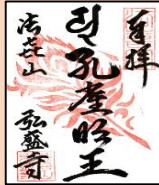 奉拝
孔雀明王
法㐂山
弘盛寺